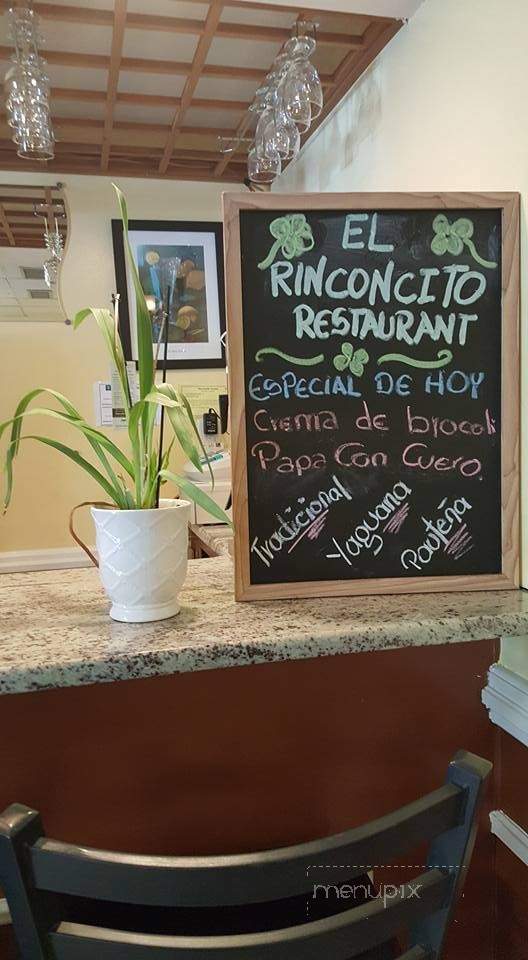 EL
RINCONCITO
RESTAURANT
ESPECIAL DE HOY
Crema de brocoli
Papa Con Cuero
Tradicional
Yaguana
Pauteña
menupix